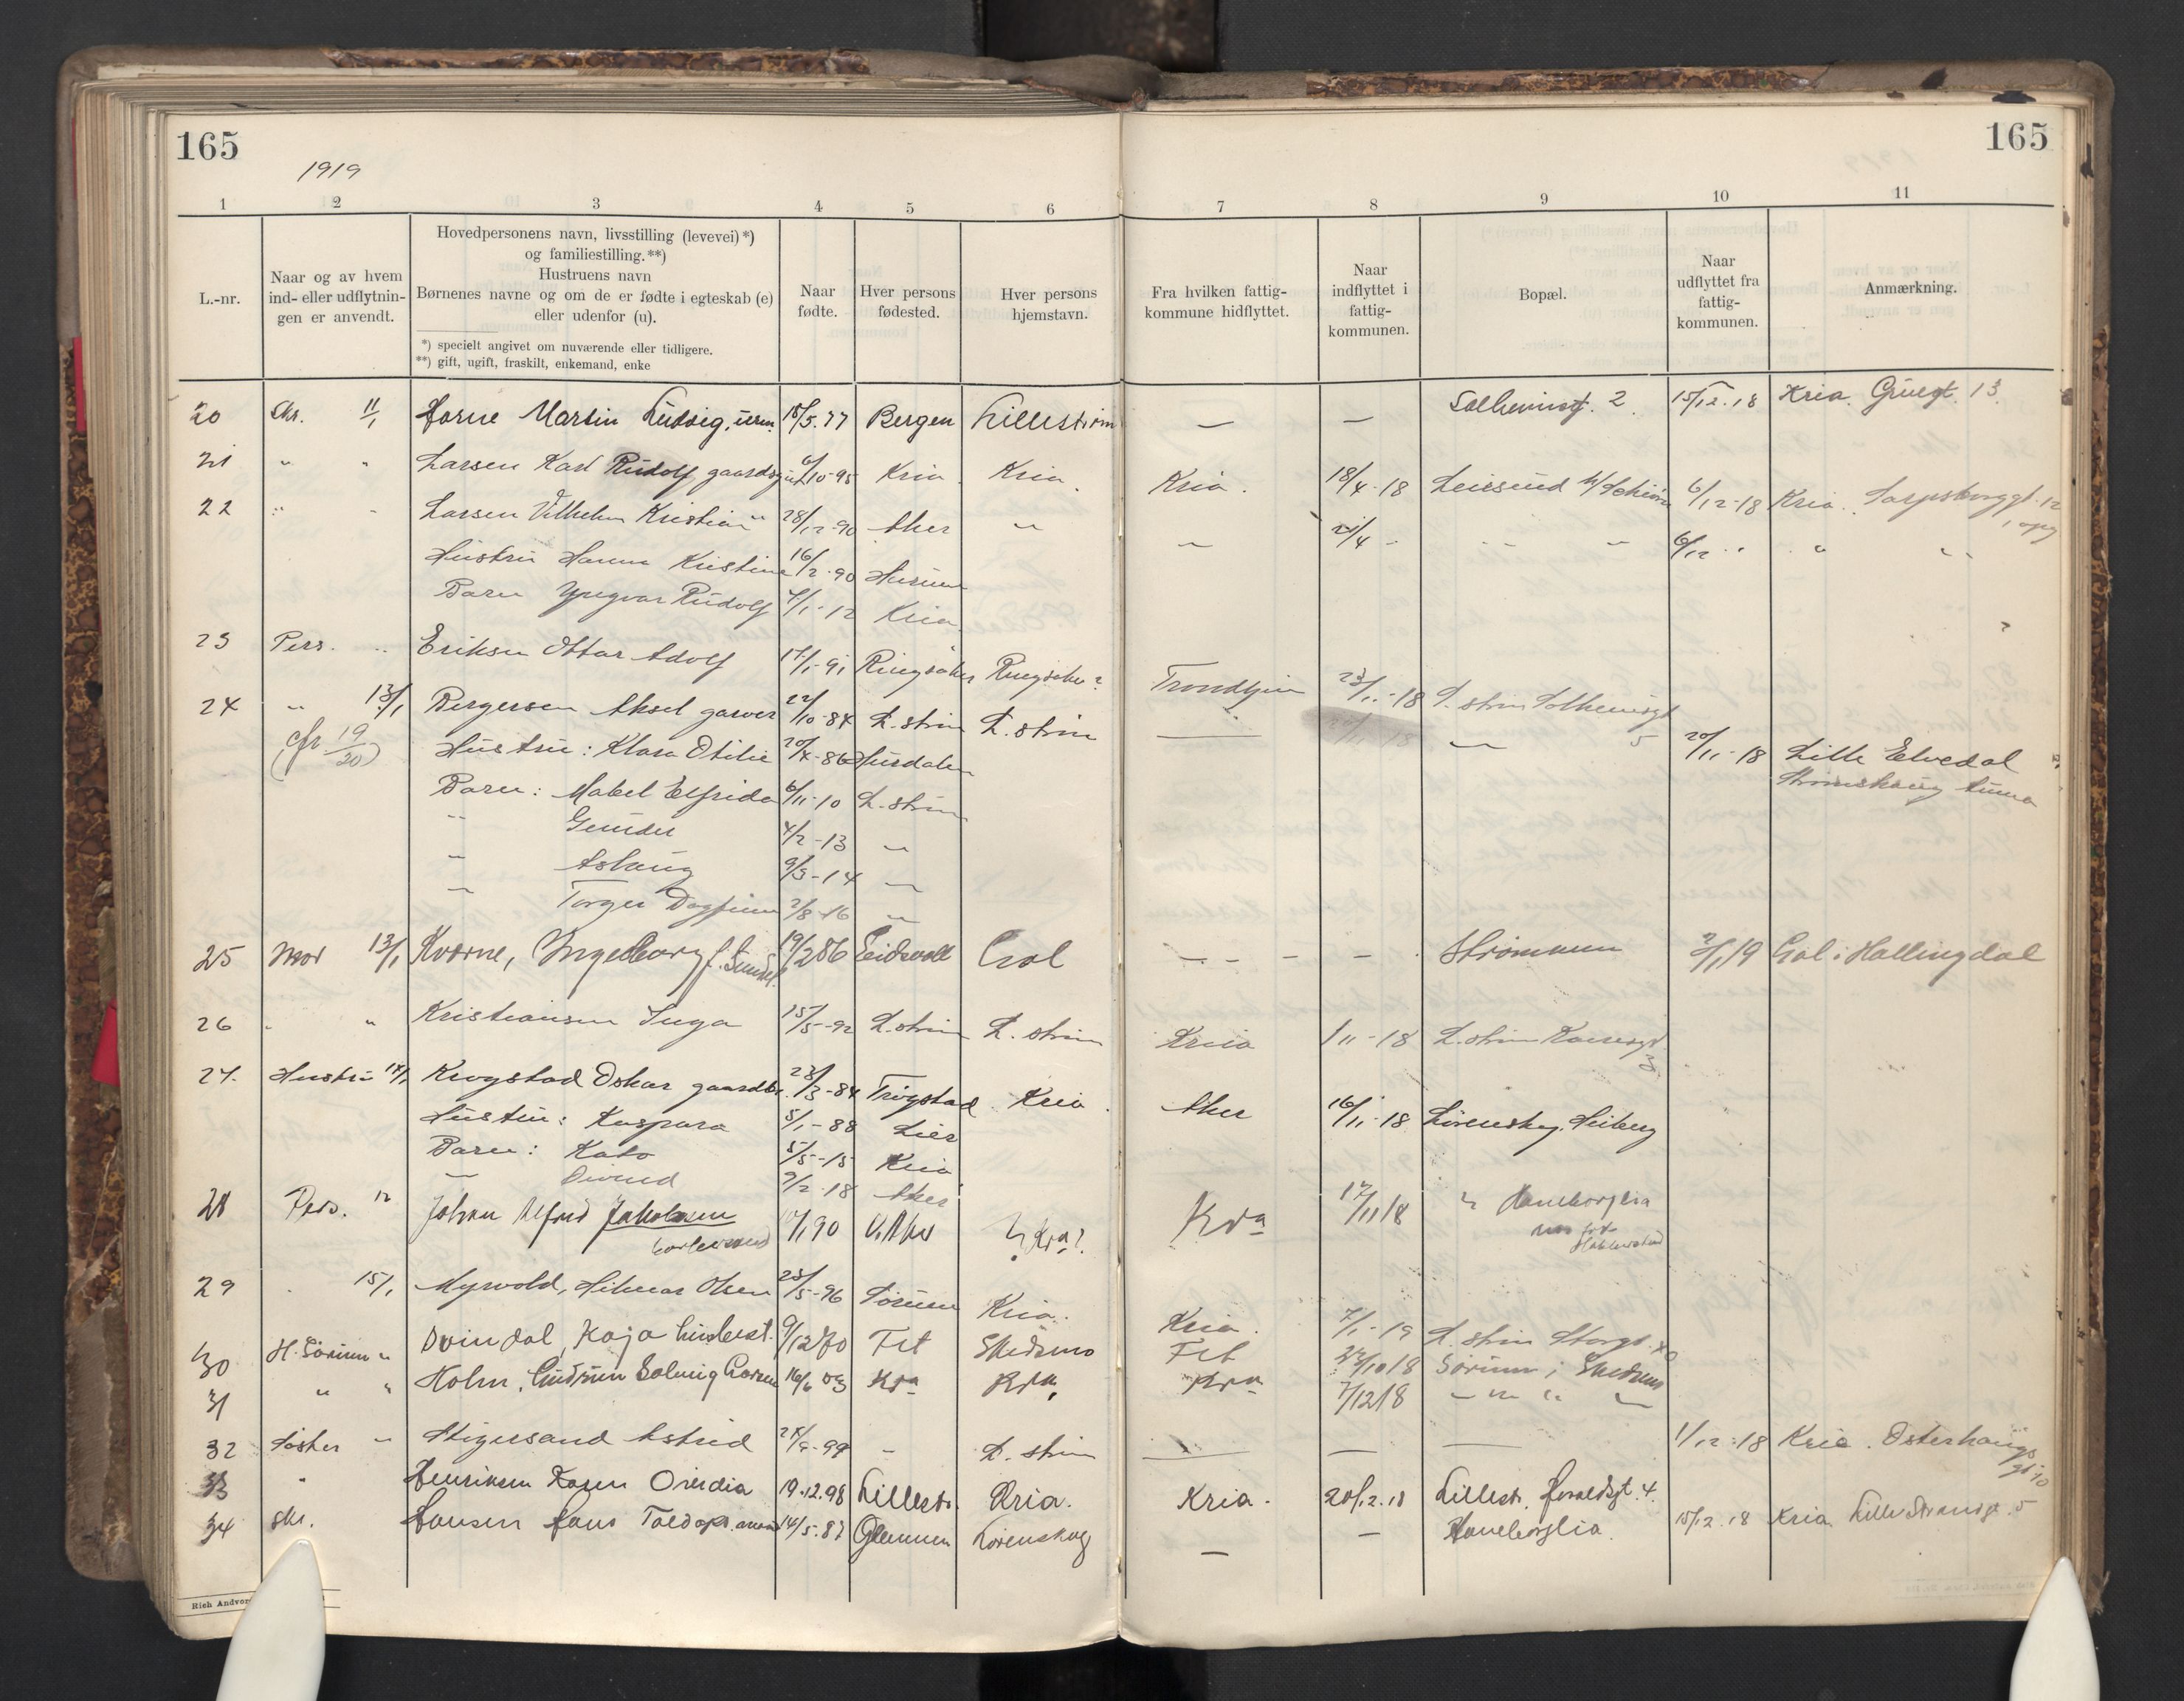 165
165
1919
1 2 3 4 5 6 7 8 9 10 11
L.-nr.
Naar og av hvem
ind- eller udflytnin-
gen er anvendt.
Hovedpersonens navn, livsstilling (levevei) *)
og familiestilling. **)
Hustruens navn
Børnenes navne og om de er fødte i egteskab (e)
eller udenfor (u).
*) specielt angivet om nuværende eller tidligere.
**) gift, ugift, fraskilt, enkemand, enke
Naar
fødte.
Hver persons
fødested.
Hver persons
hjemstavn.
Fra hvilken fattig-
kommune hidflyttet.
Naar
indflyttet i
fattig-
kommunen.
Bopæl.
Naar
udflyttet fra
fattig-
kommunen.
Anmærkning.
20 Skr. 11/1 Horne Martin Ludvig, urm. 15/5.77 Bergen Lillestrøm — — Solheimsgt. 2. 15/12.18 Kria. Grüegt. 13
21 " " Larsen Karl Rudolf 6/10-95 Kria. Kria. Kria. 18/4-18 6/12-18 Kria. Sarpsborggt. 12
22 " " Larsen Vilhelm Kristian " 28/12-90 Aker " " 21/4 - " " 6/12 " " "
Hustru Hanna Kristine 16/2-90 Hurum
Barn Yngvar Rudolf 4/1-12 Kria
23 Pers. " Eriksen Ottar Adolf 17/1-91 Ringsaker Ringsaker? Trondhjem 23/11-18 L. strøm Solheimsgt
24 " 13/1 Bergersen Aksel garver 22/10-84 L. strøm L. strøm — — 5 20/11-18 Lille Elvedal
(cfr 19/20) Hustru: Klara Otilie 20/4-86 Hurdalen
Barn: Mabel Elfrida 6/11-10 L. strøm
" Gunder 4/2-13 "
" Aslaug 9/3-14 "
" Torger Dagfinn 2/8-16 "
25 Mor 13/1 Kværne, Ingeborg 19/2 86 Eidsvoll Gol - - - - - Strømmen 2/1 19 Gol i Hallingdal
26 " " Kristiansen Inga 15/5-92 L. strøm L. strøm Kria 1/11-18 L. strøm
3
27. Hustru 14/1 Krogstad Oskar gaardbr. 23/3-84 Trøgstad Kria. Aker 16/11-18 Lørenskog, Heiberg
Hustru: Kaspara 5/1-88 Lier
Barn: Kato 5/5-15 Kria
" Eivind 9/2-18 Aker
28 Pers. " Johan Alfred Jakobsen 90 V. Aker Kra? Kra 17/11 18 " Haneborglia
29 15/1 Myrvold, Hilmar Olsen 23/5-96 Sørum Kria. Kria. 7/1-19 L. strøm Storgt.
30 H. Sørum " Svindal, Kaja 9/12 70 Fet Skedsmo Fet 27/10 18 Sørum i Skedsmo
31 " " Holm, Gudrun Solveig Larsen 16/6 03 Kra Kra. Kra 7/12 18 " " "
32 Søster " Stigersand Astrid 24/9-99 - L. strøm — — — 1/12-18 Kria. Østerhaugs
gt. 10
33 " Henriksen Karen Ovedia 19.12.98 Lillestr. Kria. Kria. 20/12.18 Lillestr. 4.
34 Skr. Hansen Hans 14/5.87 Glemmen Lørenskog — — Haneborglia. 15/12.18 Kria. Lille Strandgt. 5